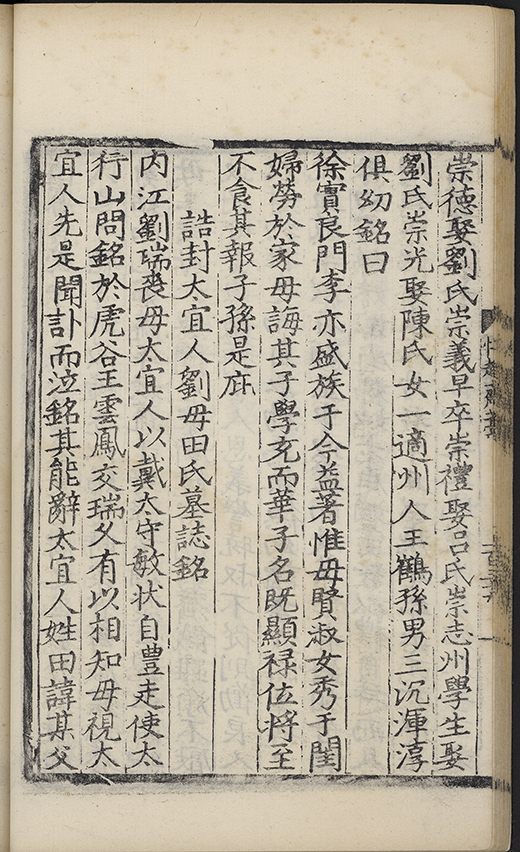 崇德娶劉氏崇義早卒崇禮娶呂氏崇志州學生娶
劉氏崇光娶陳氏女一適州人王鶴孫男三沉渾淳
俱幼銘曰
徐實良門李亦盛族于今益著惟毋賢淑女秀于閨
婦勞於家毋誨其子學充而華子名既顯禄位將至
不食其報子孫是庇
誥封太宜人劉毋田氏墓誌銘
内江劉瑞喪毋太宜人以戴太守敏狀自豊走使太
行山問銘於虎谷王雲鳳交瑞久有以相知毋視太
宜人先是聞訃而泣銘其能辭太宜人姓田諱某父